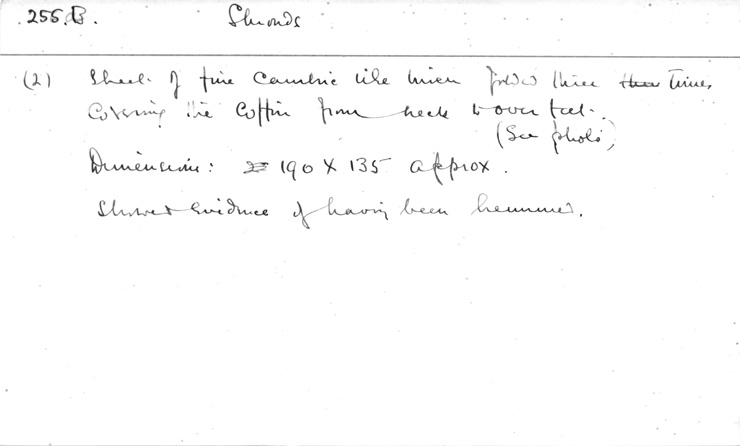 255.B. Shrouds
(2) Sheet of fine cambric like linen folded three times
covering the coffin from neck to over feet.
(See photo)
Dimensions: 190 X 135 approx.
Showed evidence of having been hemmed.